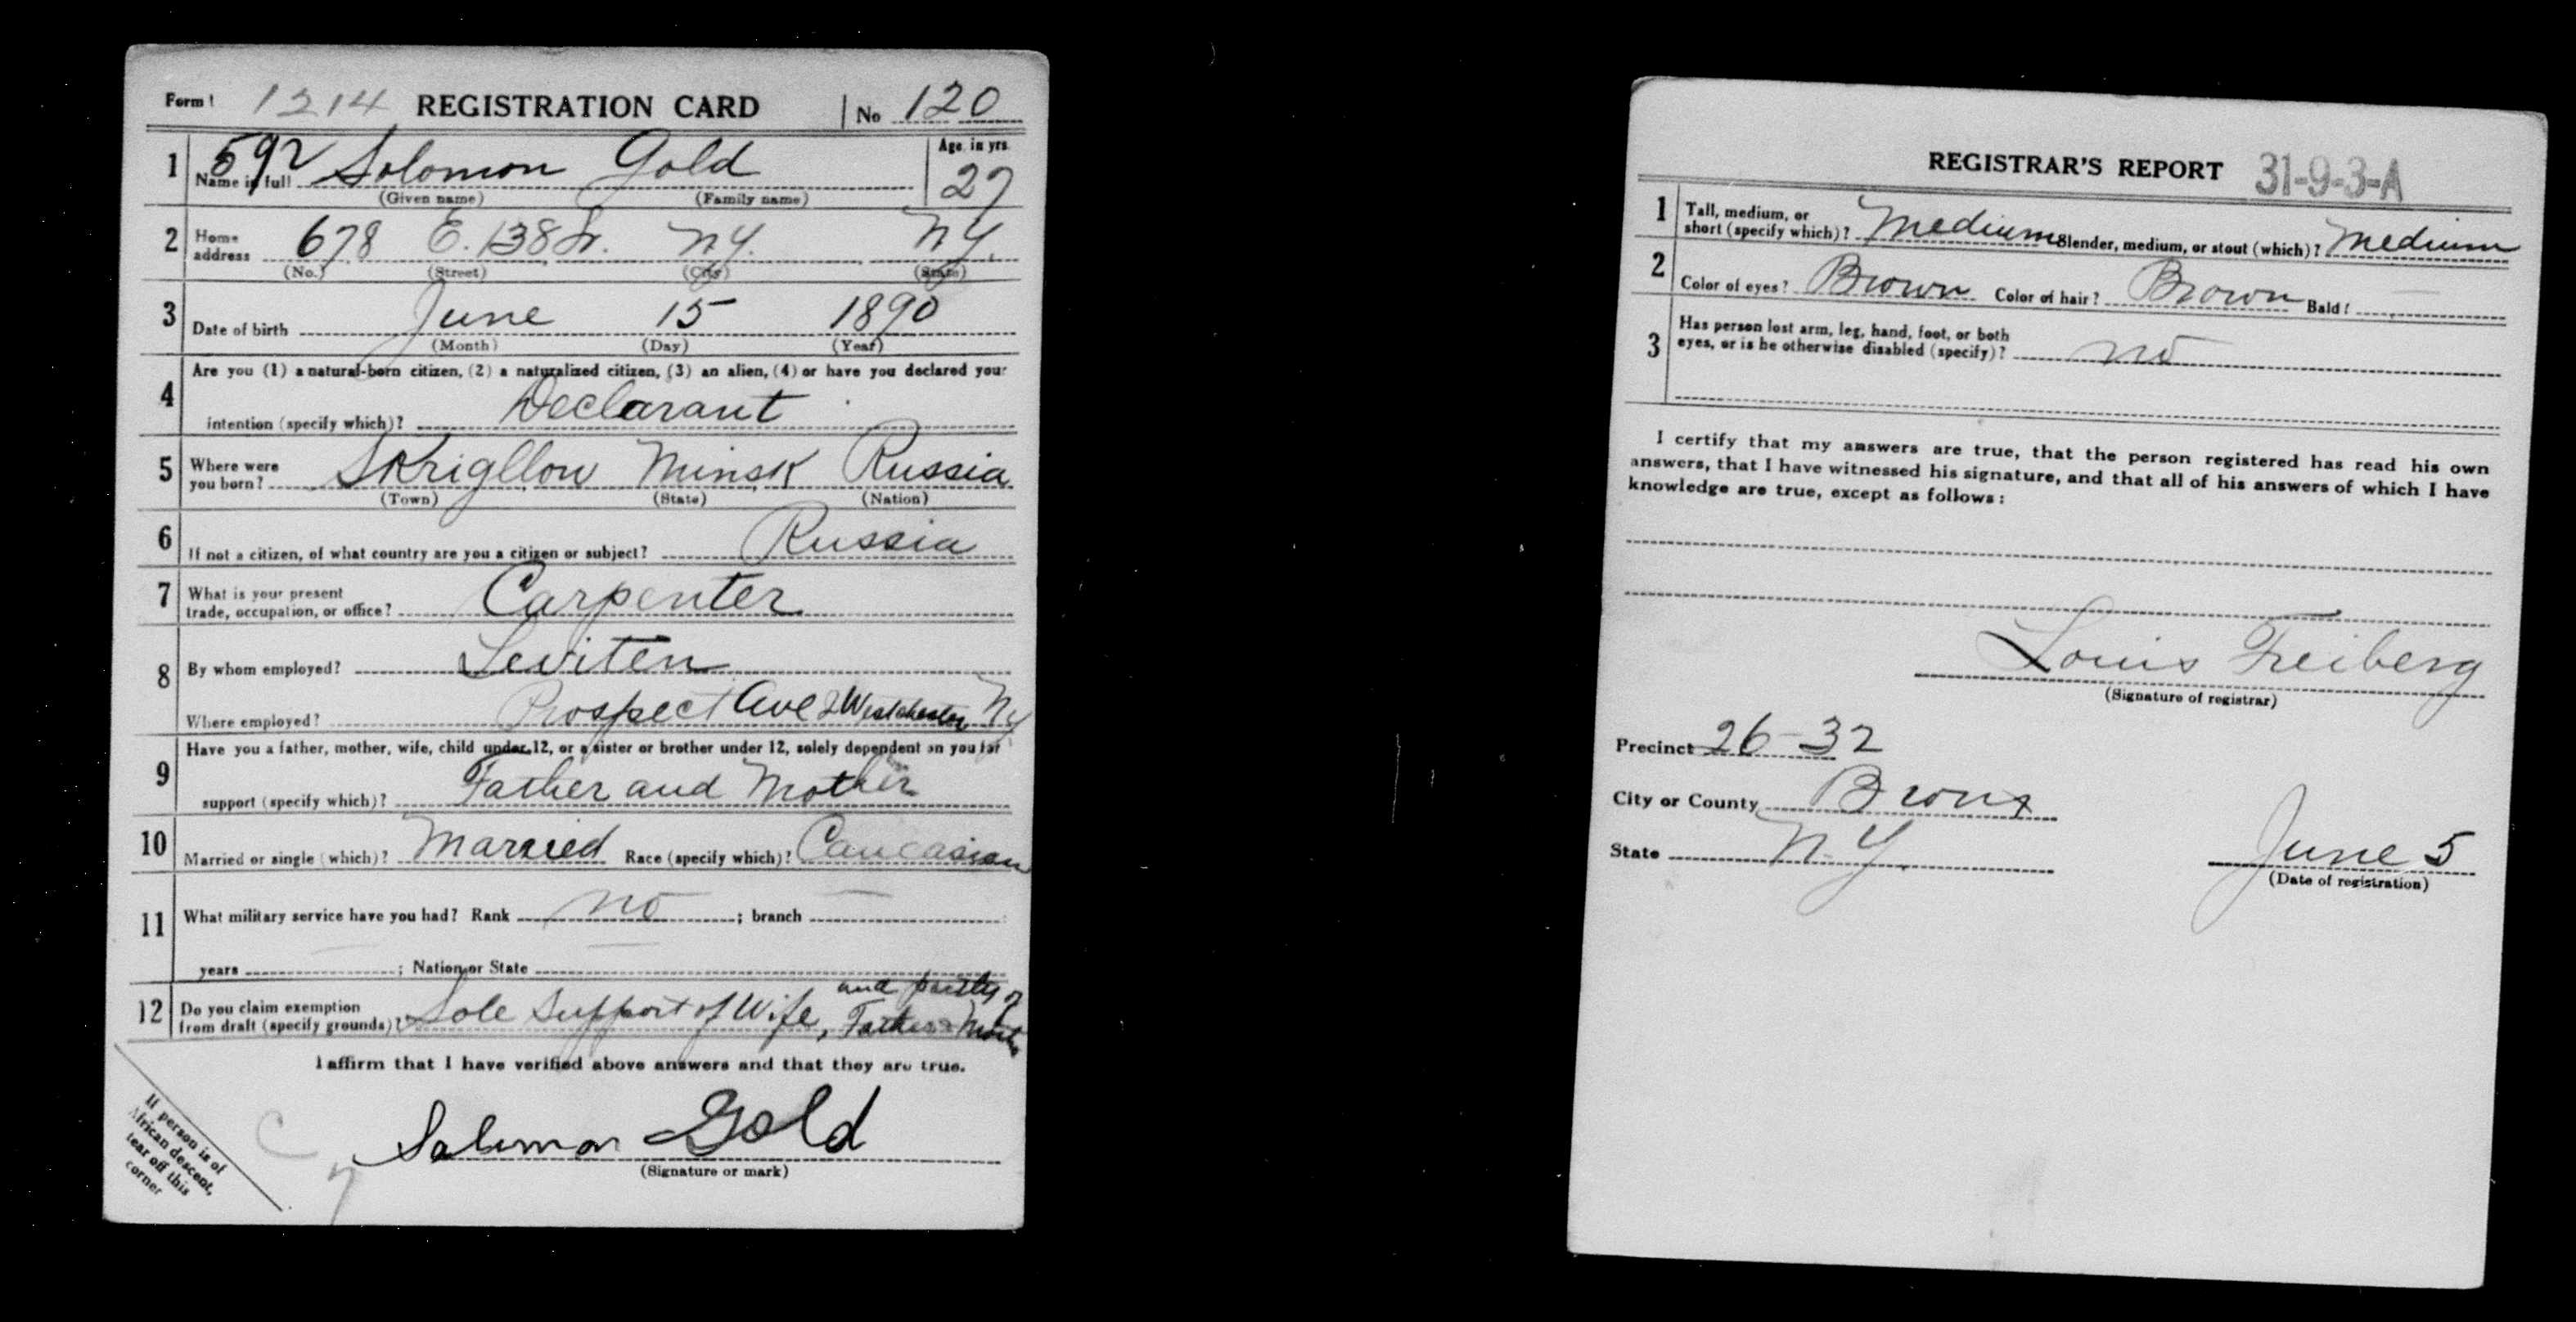 Form 1 1214 REGISTRATION CARD No 120
1 592 Name in full Solomon Gold Age in yrs. 27
(Given name) (Family name)
2 Home address 678 E. 138 St. N.Y. N.Y.
(No.) (Street) (City) (State)
3 Date of birth June 15 1890
(Month) (Day) (Year)
4 Are you (1) a natural-born citizen, (2) a naturalized citizen, (3) an alien, (4) or have you declared your
intention (specify which)? Declarant
5 Where were you born? Skrigllow Minsk Russia
(Town) (State) (Nation)
6 If not a citizen, of what country are you a citizen or subject? Russia
7 What is your present
trade, occupation, or office? Carpenter
8 By whom employed? Leviten
Where employed? Prospect Ave & Westchester Ny
9 Have you a father, mother, wife, child under 12, or a sister or brother under 12, solely dependent on you for
support (specify which)? Father and Mother
10 Married or single (which)? Married Race (specify which)? Caucasian
11 What military service have you had? Rank no ; branch —
years — ; Nation or State —
12 Do you claim exemption
from draft (specify grounds)? Sole Support of Wife, and partly of Father & Mother
I affirm that I have verified above answers and that they are true.
If person is of
African descent,
tear off this
corner
C
7
Solomon Gold
(Signature or mark)
REGISTRAR'S REPORT 31-9-3-A
1 Tall, medium, or
short (specify which)? Medium Slender, medium, or stout (which)? Medium
2 Color of eyes? Brown Color of hair? Brown Bald? —
3 Has person lost arm, leg, hand, foot, or both
eyes, or is he otherwise disabled (specify)? no
I certify that my answers are true, that the person registered has read his own
answers, that I have witnessed his signature, and that all of his answers of which I have
knowledge are true, except as follows:
Louis Freiberg
(Signature of registrar)
Precinct 26-32
City or County Bronx
State N.Y. June 5
(Date of registration)